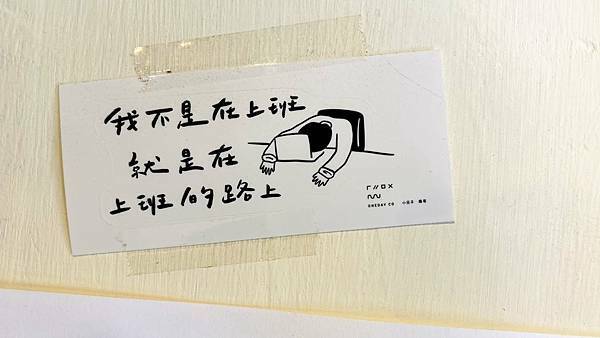 我不是在上班
就是在
上班的路上
ONEDAY CO